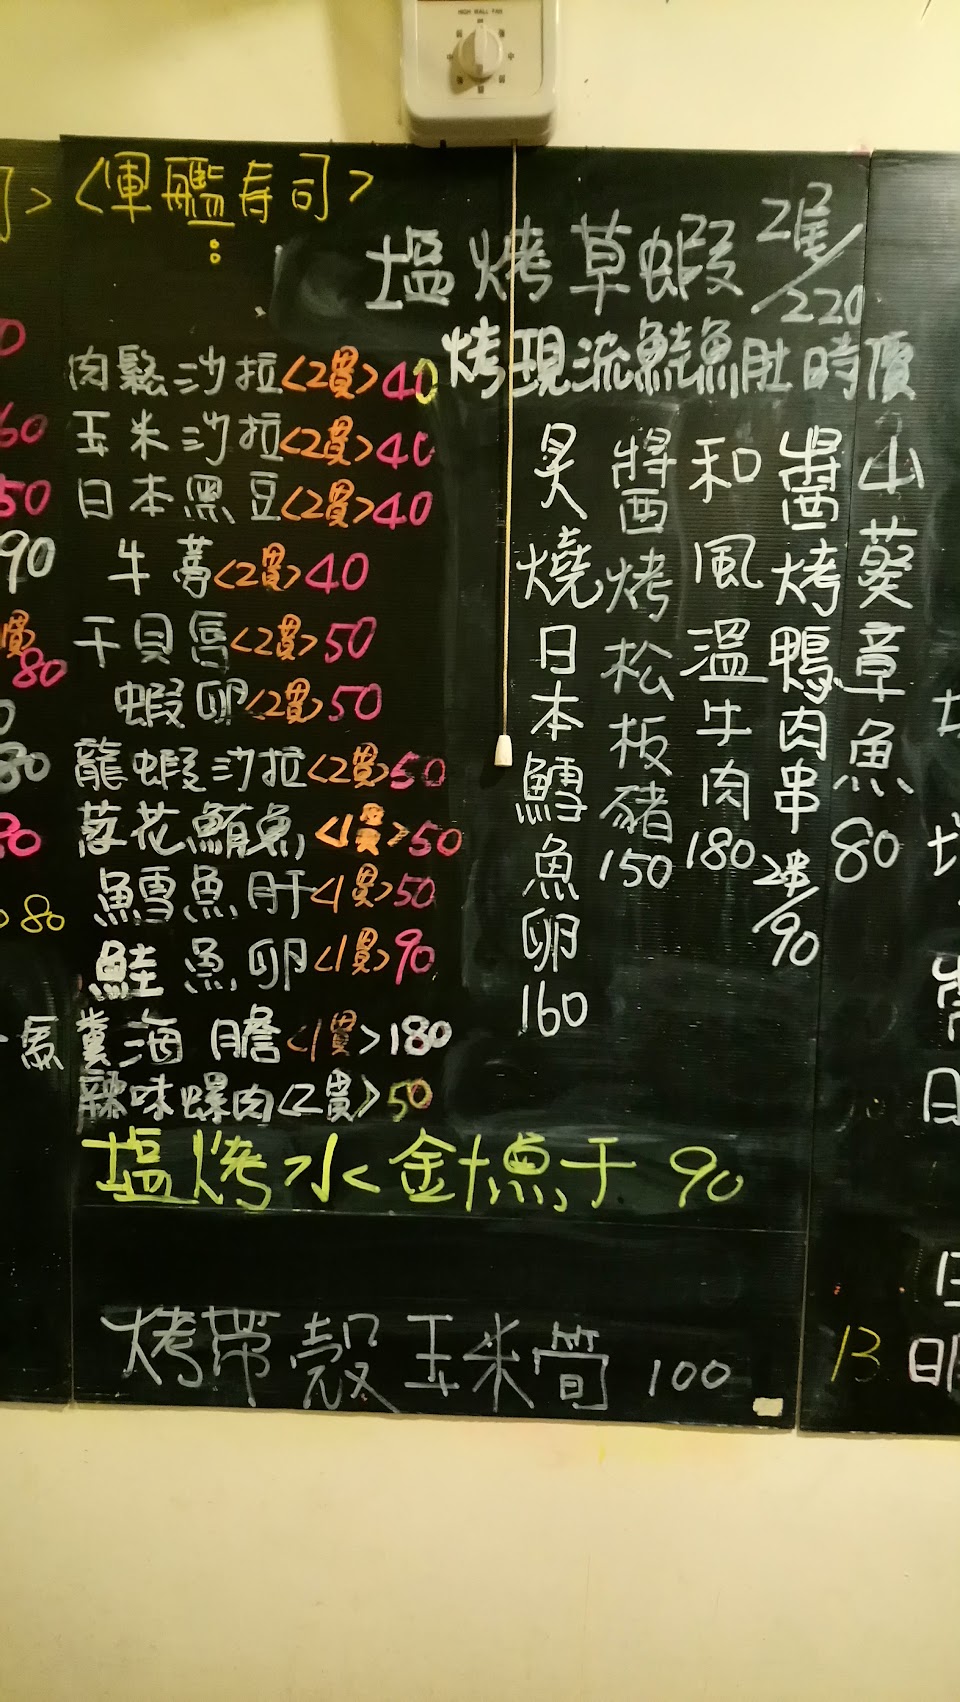 HIGH WALL FAN
<軍艦寿司>
塩烤草蝦 2尾/220
烤現流鮭魚肚 時價
肉鬆沙拉<2貫>40
玉米沙拉<2貫>40
日本黑豆<2貫>40
牛蒡<2貫>40
干貝唇<2貫>50
蝦卵<2貫>50
龍蝦沙拉<2貫>50
蔥花鮪魚<1貫>50
鱈魚肝<1貫>50
鮭魚卵<1貫>90
海膽<1貫>180
辣味螺肉<2貫>50
山葵章魚 80
醬烤鴨肉串 2串/90
和風溫牛肉 180
醬烤松板豬 150
炙燒日本鱈魚卵 160
塩烤水 90
烤帶殼玉米筍 100
60
50
90
80
80
80
80
13
日
日
明